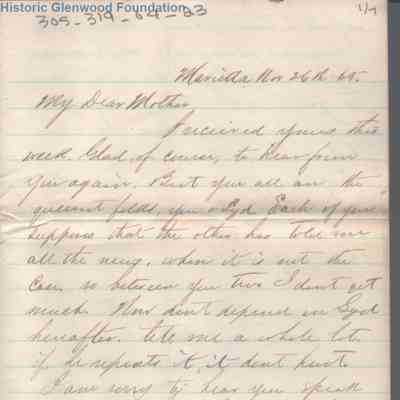 Historic Glenwood Foundation
305-319-64-23
1/7
Marietta Nov 26th 65.
My Dear Mother,
I received yours this
week. Glad, of course, to hear from
you again. But you all are the
queerest folks, you & Syd. Each of you
suppose that the other has told me
all the news, when it is not the
case, so between you two I don't get
much. Now don't depend on Syd
hereafter. tell me a whole lot.
if he repeats it, it dont hurt.
I am sorry to hear you speak